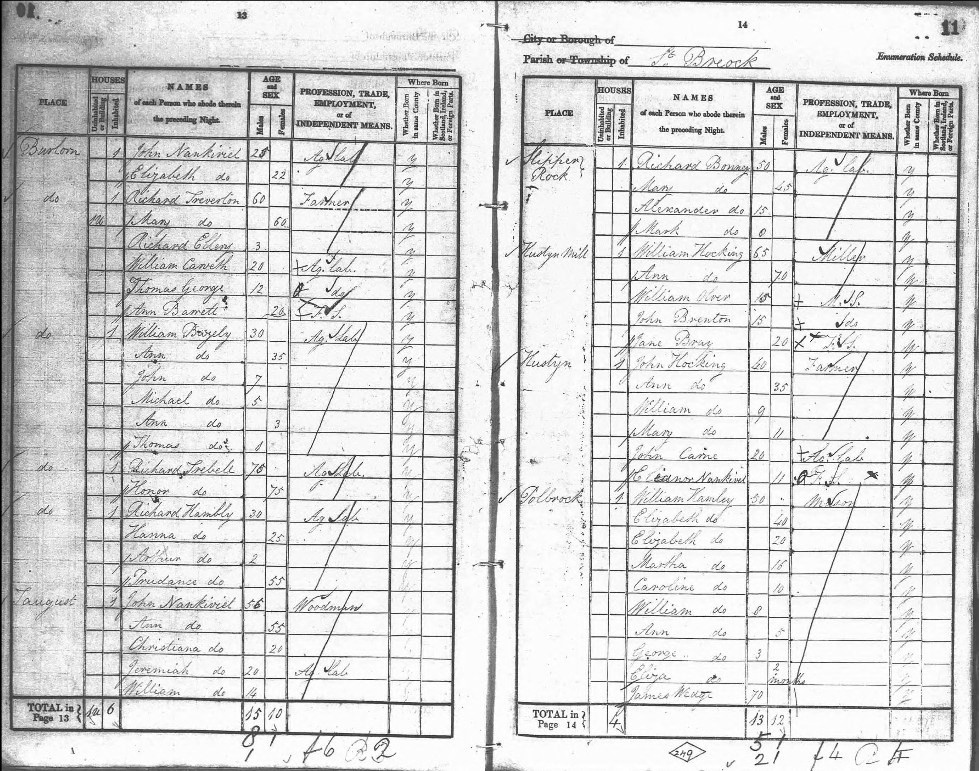 13
HOUSES
AGE and SEX
Where Born
PLACE
Uninhabited or Building
Inhabited
NAMES of each Person who abode therein the preceding Night.
Males
Females
PROFESSION, TRADE, EMPLOYMENT, or of INDEPENDENT MEANS.
Whether Born in same County
Whether Born in Scotland, Ireland, or Foreign Parts.
1 John Nankivil 25 Ag Lab y
Elizabeth do 22 y
do 1 Richard Treverton 60 Farmer y
Mary do 60 y
Richard Ellery 3 y
William Carveth 20 Ag. Lab. y
Thomas George 12 do y
Ann Barrett 20 F. S. y
do 1 William 30 Ag Lab y
Ann do 35 y
John do 7 y
Michael do 5 y
Ann do 3 y
Thomas do 1 y
do 1 Richard 75 Ag Lab y
Honor do 75 y
do 1 Richard Hambly 30 Ag Lab y
Hanna do 25
Arthur do 2
Prudance do 55
1 John Nankivil 56 Woodman
Ann do 55
Christiana do 20
Jeremiah do 20 Ag Lab
William do 14
TOTAL in Page 13 6 15 10
14
11
City or Borough of
Parish or Township of St Breock
Enumeration Schedule.
HOUSES
AGE and SEX
Where Born
PLACE
Uninhabited or Building
Inhabited
NAMES of each Person who abode therein the preceding Night.
Males
Females
PROFESSION, TRADE, EMPLOYMENT, or of INDEPENDENT MEANS.
Whether Born in same County
Whether Born in Scotland, Ireland, or Foreign Parts.
Slipper Rock 1 Richard Bonney 50 Ag. Lab. y
Mary do 45 y
Alexander do 15 y
Mark do y
Hustyn Mill 1 William Hocking 65 Miller y
Ann do 70 y
William Olver 15 M. S. y
John Brenton 15 do y
Jane Bray 20 F. S. y
Hustyn 1 John Hocking 40 Farmer y
Ann do 35 y
William do 9 y
Mary do 11 y
John Carne 20 Ag. Lab y
Eleanor Nankivil 11 F. S. y
Polbrock 1 William Hamley 50 Mason y
Elizabeth do 40 y
Elizabeth do 20 y
Martha do 16 y
Caroline do 10 y
William do 8 y
Ann do 5 y
George do 3 y
Eliza do 2 months y
James 70 y
TOTAL in Page 14 4 13 12
249